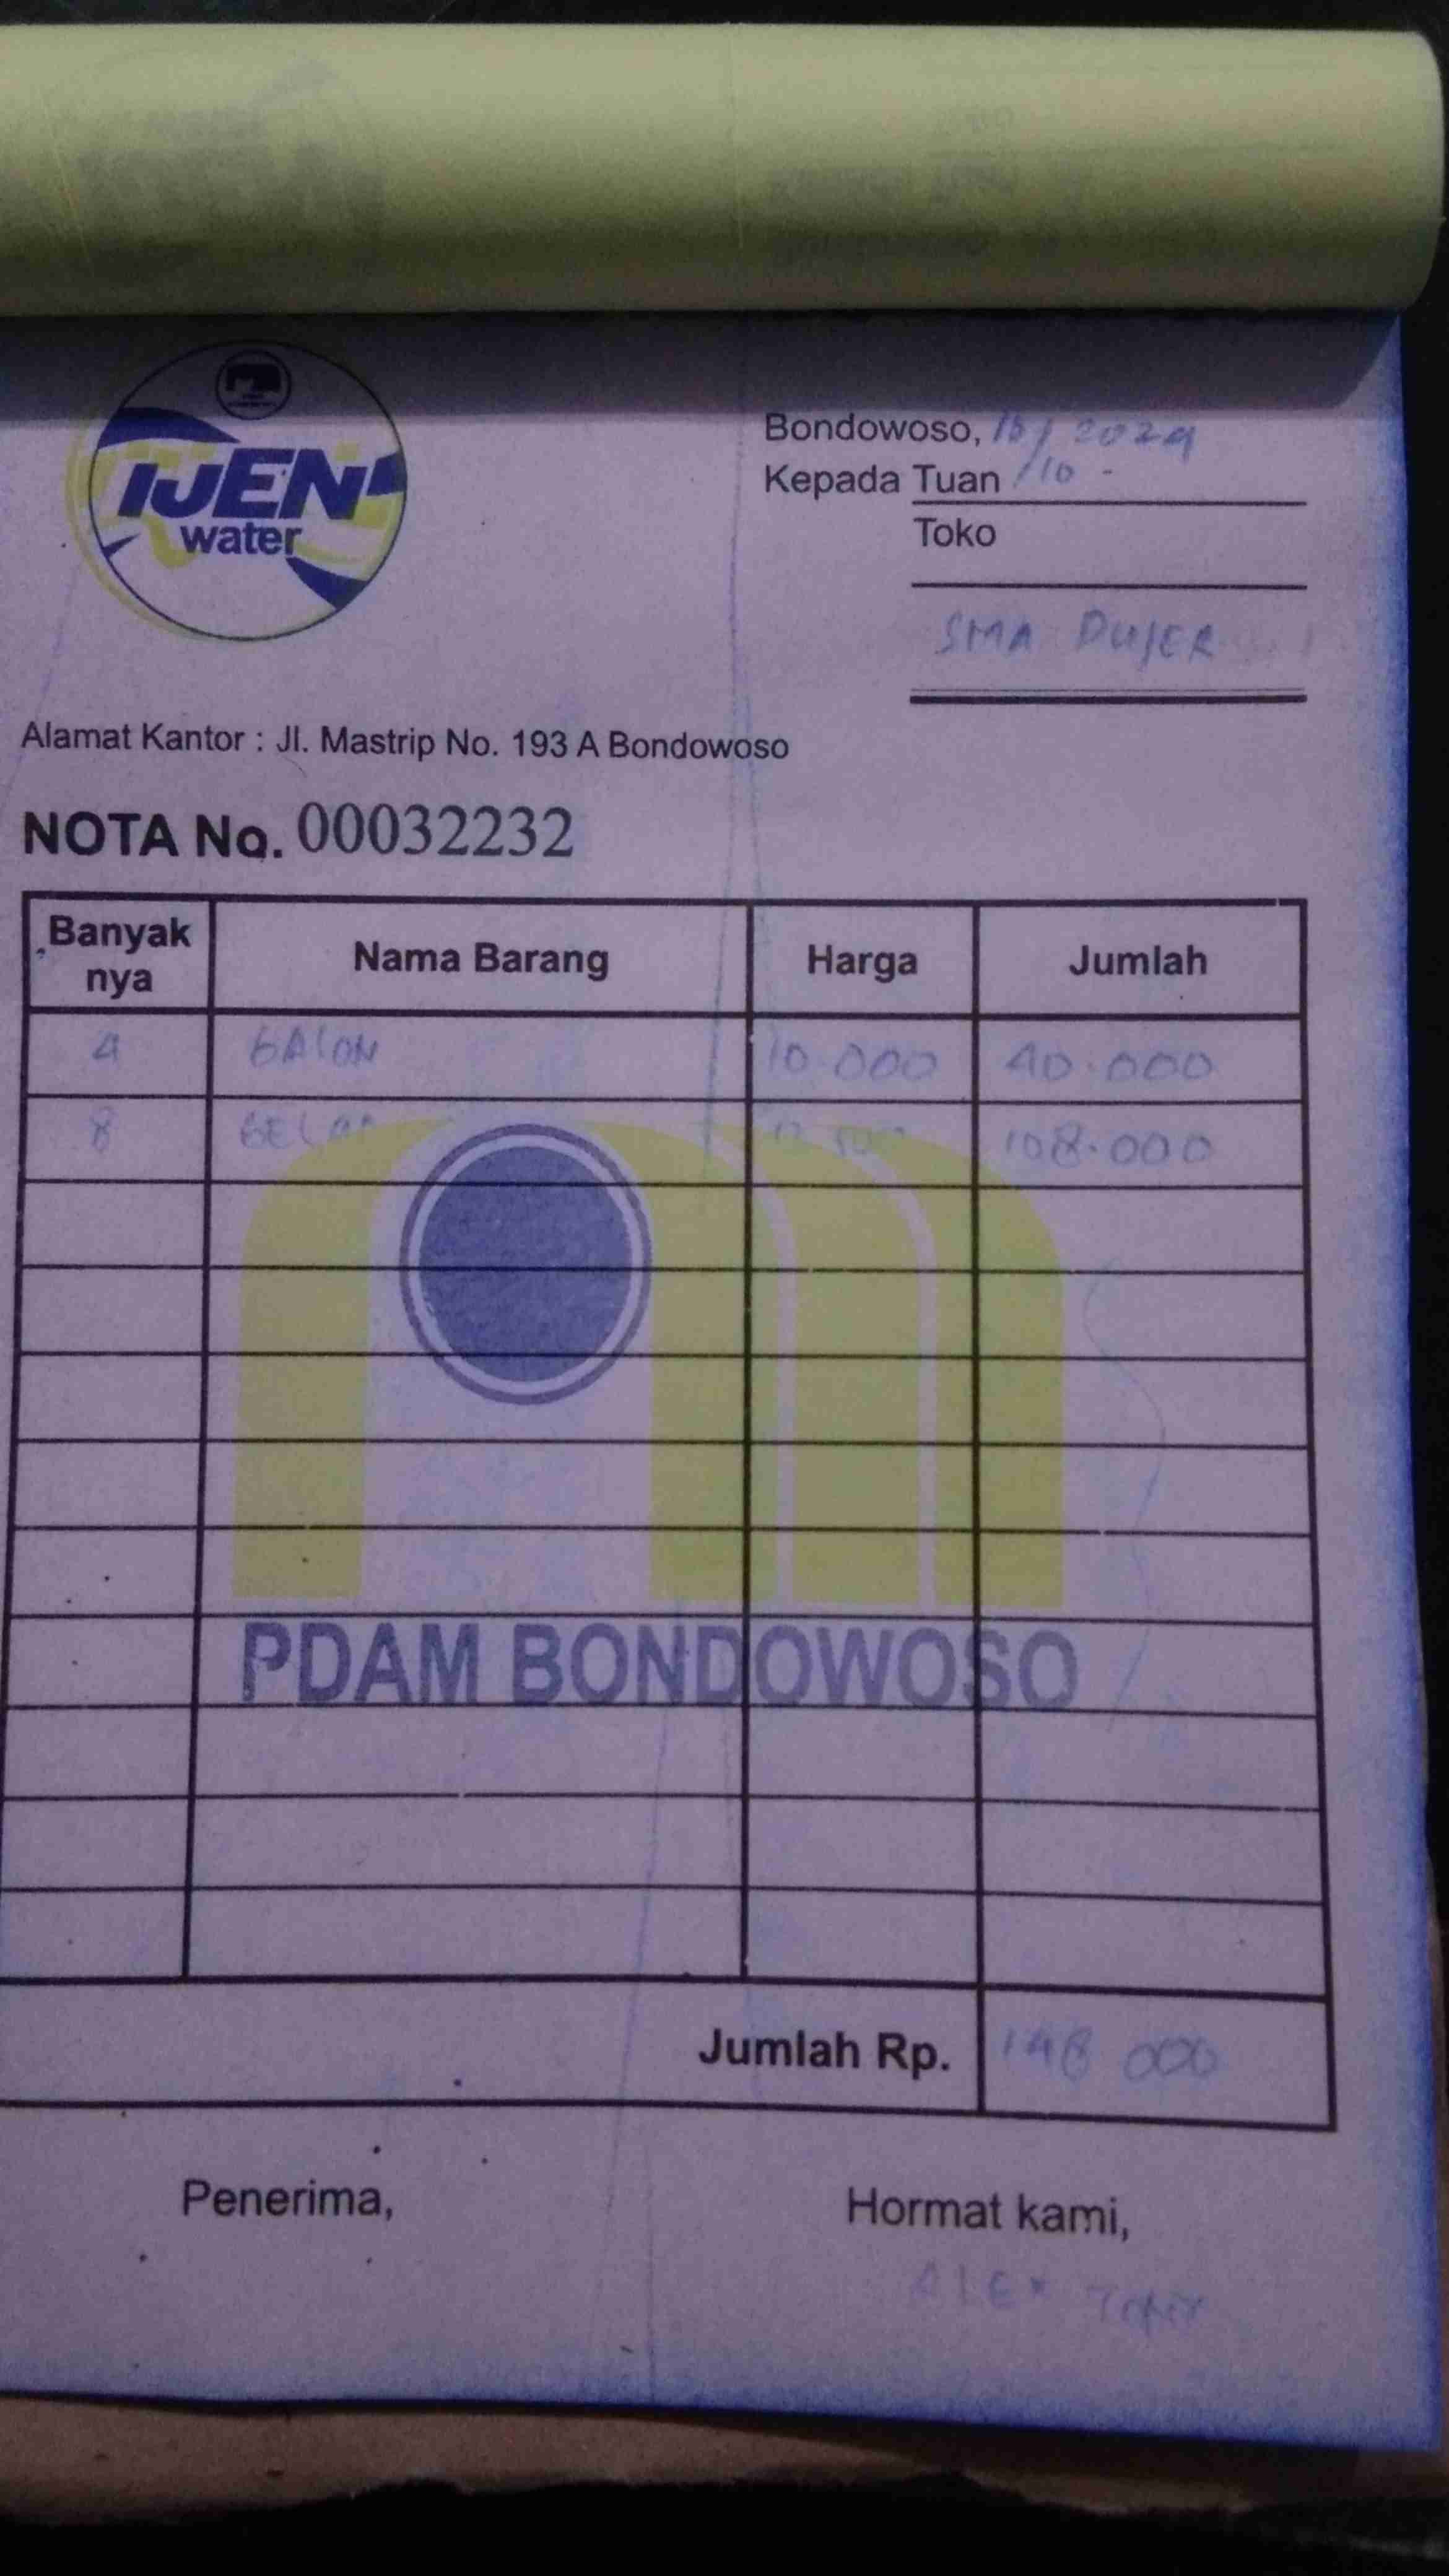 IJEN
water
Bondowoso, 2024
Kepada Tuan /10 -
Toko
SMA PUJER
Alamat Kantor : Jl. Mastrip No. 193 A Bondowoso
NOTA No. 00032232
Banyak nya Nama Barang Harga Jumlah
4 GALON 10.000 40.000
8 108.000
PDAM BONDOWOSO
Jumlah Rp. 148 000
Penerima, Hormat kami,
ALEX